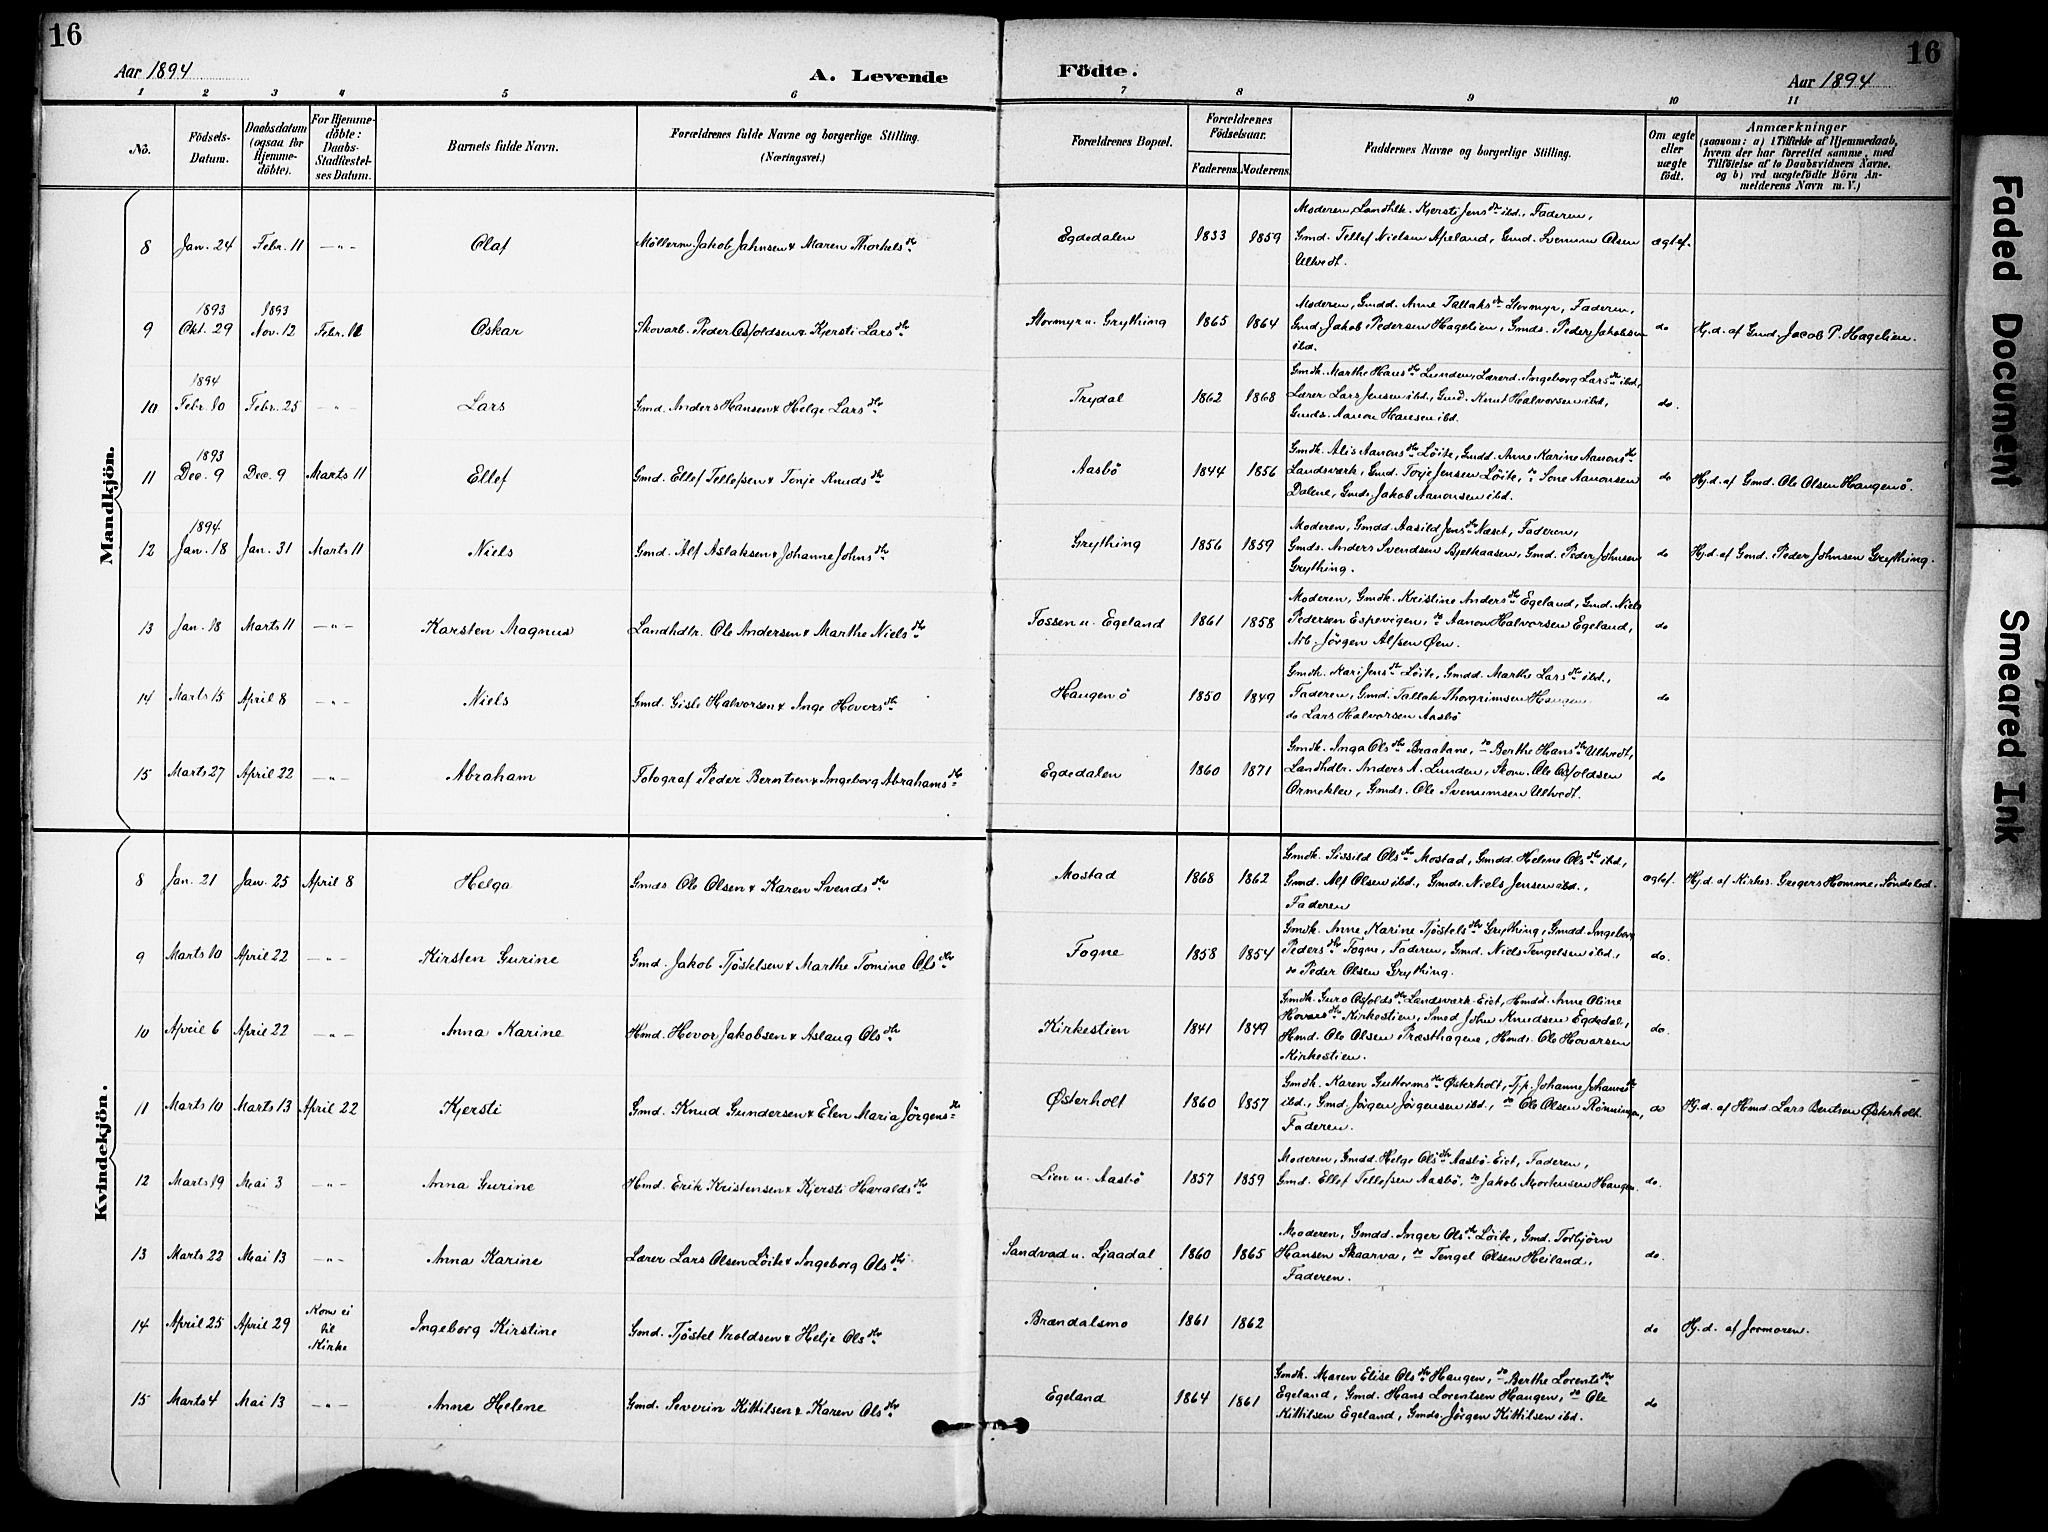 16
Aar 1894
A. Levende
Födte.
Aar 1894
16
1 2 3 4 5 6 7 8 9 10 11
No.
Födsels-Datum.
Daabsdatum (ogsaa for Hjemme-döbte).
For Hjemme-döbte: Daabs-Stadfæstel-ses Datum.
Barnets fulde Navn.
Forældrenes fulde Navne og borgerlige Stilling. (Næringsvei.)
Forældrenes Bopæl.
Forældrenes Födselsaar.
Faderens. Moderens.
Faddernes Navne og borgerlige Stilling.
Om ægte eller uægte födt.
Anmærkninger
(saasom: a) i Tilfælde af Hjemmedaab, hvem der har forrettet samme, med Tilföielse af to Daabsvidners Navne, og b) ved uægtefödte Börn An-melderens Navn m. V.)
Mandkjön.
8 Jan. 24 Febr. 11 —"— Olaf Möllerm. Jakob Jahnsen & Maren Thorkelsdtr Egdedalen 1833 1859 Moderen, Landhlk. Kjersti Jensdtr ibd., Faderen,
Gmd. Tellef Nielsen Apeland, Gmd. Svenum Olsen ægtef.
Ulltvedt.
9 1893 Okt. 29 1893 Nov. 12 Febr. 11 Oskar Skovarb. Peder Osfoldsen & Kjersti Larsdtr Stormyr u. Grything 1865 1864 Moderen, Gmdd. Anne Tallaksdtr Stormyr, Faderen,
Gmd. Jakob Pedersen Hagelien, Gmds. Peder Jakobsen do Hj.d. af Gmd. Jacob P. Hagelien.
ibd.
10 1894 Febr. 10 Febr. 25 —"— Lars Gmd. Anders Hansen & Helge Larsdtr Trydal 1862 1868 Gmdk. Marthe Hansdtr Lunden, Lærerd. Ingeborg Larsdtr ibd.,
Lærer Lars Jensen ibd., Gmd. Knut Halvorsen ibd., do.
Gmds. Aanon Hansen ibd.
11 1893 Dec. 9 Dec. 9 Marts 11 Ellef Gmd. Ellef Tellefsen & Tonje Knudsdtr Aasbö 1844 1856 Gmdk. Alis Aanonsdtr Löite, Gmdd. Anne Karine Aanonsdtr
Landsværk, Gmd. Torje Jensen Löite, do Sone Aanonsen do Hj.d. af Gmd. Ole Olsen Haugenö.
Dalene, Gmds. Jakob Aanonsen ibd.
12 1894. Jan. 18 Jan. 31 Marts 11 Niels Gmd. Alf Aslaksen & Johanne Johnsdtr Grything 1856 1859 Moderen, Gmdd. Aasild Jensdtr Næset, Faderen,
Gmds. Anders Svendsen Bjelkaasen, Gmd. Peder Johnsen do Hj.d. af Gmd. Peder Johnsen Grything.
Grything.
13 Jan. 18 Marts 11 —"— Karsten Magnus Landhdlr. Ole Andersen & Marthe Nielsdtr Fossen u. Egeland 1861 1858 Moderen, Gmdk. Kristine Andersdtr Egeland, Gmd. Niels
Pedersen Espevigen, do Aanon Halvorsen Egeland, do
Arb. Jörgen Alfsen Öen.
14 Marts 15 April 8 —"— Niels Gmd. Gisle Halvorsen & Inge Hovorsdtr Haugenö 1850 1849 Gmdk. Kari Jensdtr Löite, Gmdd. Marthe Larsdtr ibd.,
Faderen, Gmd. Tallak Thorgrimsen Haugen do
do Lars Halvorsen Aasbö
15 Marts 27 April 22 —"— Abraham Fotograf Peder Berntsen & Ingeborg Abrahamsdtr Egdedalen 1860 1871 Gmdk. Inga Olsdtr Braatane, do Berthe Hansdtr Ulltvedt,
Landhdlr. Anders A. Lunden, Skom. Ole Osfoldsen do
Ormeklev, Gmds. Ole Svenumsen Ulltvedt.
Kvindekjön.
8 Jan. 21 Jan. 25 April 8 Helga Gmds. Ole Olsen & Karen Svendsdtr Mostad 1868 1862 Gmdk. Sissild Olsdtr Mostad, Gmdd. Helene Olsdtr ibd.,
Gmd. Alf Olsen ibd., Gmds. Niels Jensen ibd., ægtef. Hj.d. af Kirkes. Gregers Homme, Söndeled.
Faderen
9 Marts 10 April 22 —"— Kirsten Gurine Gmd. Jakob Tjöstelsen & Marthe Tomine Olsdtr Fogne 1858 1854 Gmdk. Anne Karine Tjöstelsdtr Grything, Gmdd. Ingeborg
Pedersdtr Fogne, Faderen, Gmd. Niels Tengelsen ibd., do.
do Peder Olsen Grything.
10 April 6 April 22 —"— Anna Karine Hmd. Hovor Jakobsen & Aslaug Olsdtr Kirkestien 1841 1849 Gmdk. Guro Osfoldsdtr Landsværk-Eiet, Hmdd. Anne Oline
Hovorsdtr Kirkestien, Smed John Knudsen Egdedal, do.
Hmd. Ole Olsen Præsthagene, Hmds. Ole Hovorsen
Kirkestien.
11 Marts 10 Marts 13 April 22 Kjersti Gmd. Knud Gundersen & Elen Maria Jörgensdtr Østerholt 1860 1857 Gmdk. Karen Guttormsdtr Østerholt, Tjp. Johanne Johannesdtr
ibd., Gmd. Jörgen Jörgensen ibd., do Ole Olsen Rönningen, do Hj.d. af Hmd. Lars Bentsen Østerholt.
Faderen.
12 Marts 19 Mai 3 —"— Anna Gurine Hmd. Erik Kristensen & Kjersti Haraldsdtr Lien u. Aasbö 1857 1859 Moderen, Gmdd. Helge Olsdtr Aasbö-Eiet, Faderen,
Gmd. Ellef Tellefsen Aasbö, do Jakob Mortensen Haugen. do.
13 Marts 22 Mai 13 —"— Anna Karine Lærer Lars Olsen Löite & Ingeborg Olsdtr Sandvad u. Ljaadal 1860 1865 Moderen, Gmdd. Inger Olsdtr Löite, Gmd. Torbjörn
Hansen Skaarva, do Tengel Olsen Heiland, do.
Faderen.
14 April 25 April 29 Kom ei til Kirke Ingeborg Kirstine Gmd. Tjöstel Vroldsen & Helje Olsdtr Brændalsmo 1861 1862 do Hj.d. af Jormoren.
15 Marts 4 Mai 13 —"— Anne Helene Gmd. Severin Kittilsen & Karen Olsdtr Egeland 1864 1861 Gmdk. Maren Elise Olsdtr Haugen, do Berthe Lorentsdtr
Egeland, Gmd. Hans Lorentsen Haugen, do Ole do
Kittilsen Egeland, Gmds. Jörgen Kittilsen ibd.
Faded Document
Smeared Ink